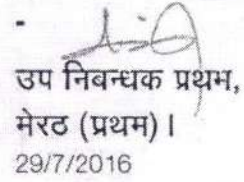 उप निबन्धक प्रथम,
मेरठ (प्रथम)।
29/7/2016